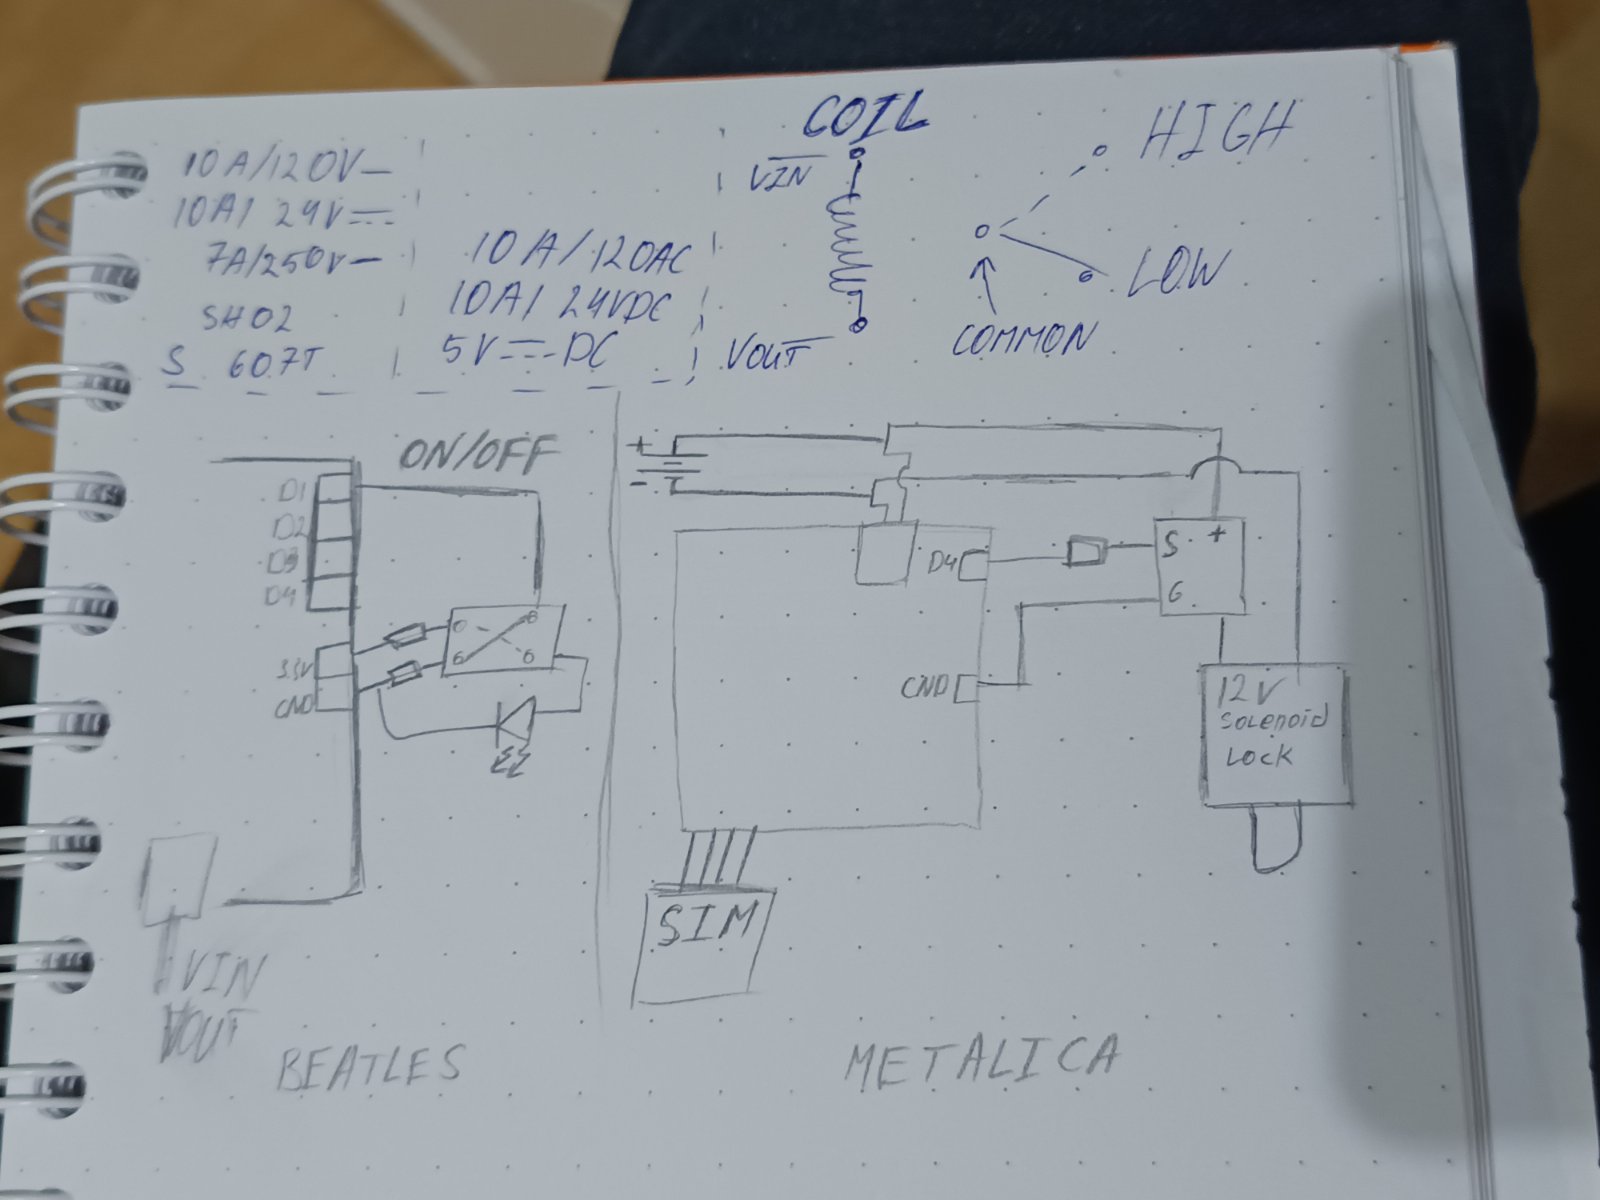 10A/120V
10A/ 24V
7A/250V
SH02
S 607T
10A/120AC
10A/ 24VDC
5V DC
COIL
VIN
VOUT
HIGH
LOW
COMMON
ON/OFF
D1
D2
D3
D4
3.3V
GND
VIN
VOUT
BEATLES
+
-
D4
GND
S +
G
12V
SOLENOID
LOCK
SIM
METALICA